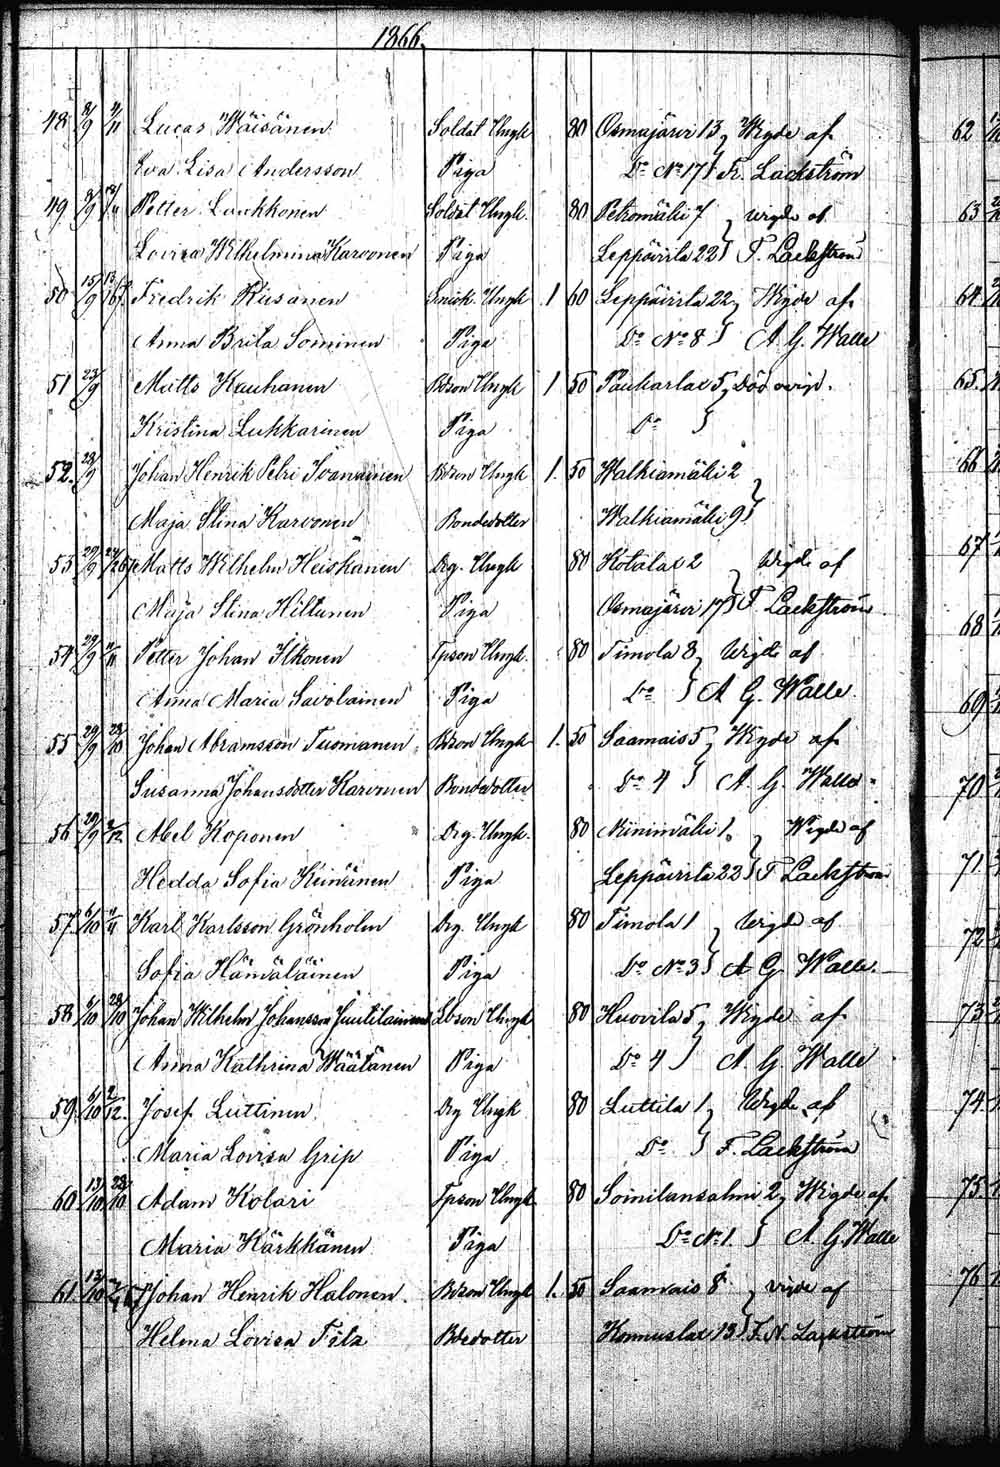 1866.
48. 8/9 4/11 Lucas Wäisänen Soldat Ungk 80 Osmajärvi 13 } Wigde af
Eva Lisa Andersson Piga Do No 17 } Fr. Lackström
49 8/9 Petter Laukkonen Soldat Ungk. 80 Petromäki 7 } wigde af
Lovisa Wilhelmina Karvonen Piga Leppävirta 22 } F. Lackström
50 15/9 Fredrik Riisanen Ungk 1 60 Leppävirta 22 } Wigde af
Anna Brita Sominen Piga Do No 8 } A. G. Walle
51 23/9 Matts Kauhanen Bdson Ungk 1 50 Paukarlax 5 }
Kristina Luhkarinen Piga Do }
52. 28/9 Johan Henrik Petri Bdson Ungk 1. 50 Walkiamäki 2 }
Maja Stina Karvonen Bondedotter Walkiamäki 9 }
53 29/9 Matts Wilhelm Heiskanen Drg. Ungk 80 Kotalax 2 } Wigde af
Maja Stina Hiltunen Piga Osmajärvi 17 } F. Lackström
54 29/9 Petter Johan Ikonen Tpson Ungk. 80 Timola 8 } Wigde af
Anna Maria Savolainen Piga Do } A G. Walle.
55 29/9 28/10 Johan Abramsson Tuomanen Bdson Ungk 1. 50 Saamais 5 } Wigde af
Susanna Johansdotter Karvonen Bondedotter Do 4 } A. G. Walle
56 29/9 2/12 Abel Koponen Drg. Ungk. 80 Niinimäki 1. } Wigde af
Hedda Sofia Keinänen Piga Leppävirta 22 } F Lackström
57. 6/10 Karl Karlsson Grönholm Drg. Ungk 80 Timola 1 } Wigde af
Sofia Hämäläinen Piga Do No 3 } A G. Walle.
58 6/10 28/10 Johan Wilhelm Johansson Juutilainen Lbson Ungk 80 Huovila 5 } Wigde af
Anna Kathrina Wäätänen Piga Do 4 } A. G. Walle
59. 6/10 2/12. Josef Luttinen Drg Ungk 80 Luttila 1 } Wigde af
Maria Lovisa Grip Piga Do } F. Lackström
60 13/10 28/10 Adam Kolari Tpson Ungk 80 Soinilansalmi 2 } Wigde af
Maria Kärkkänen Piga Do No 1. } A. G. Walle
61. 13/10 Johan Henrik Halonen. Bdson Ungk 1. 50 Saamais 8 } vigde af
Helena Lovisa Bdedotter Konnuslax 13 } F. N. Lackström
62
63
64
65.
66
67
68
69
70
71
72
73
74
75
76